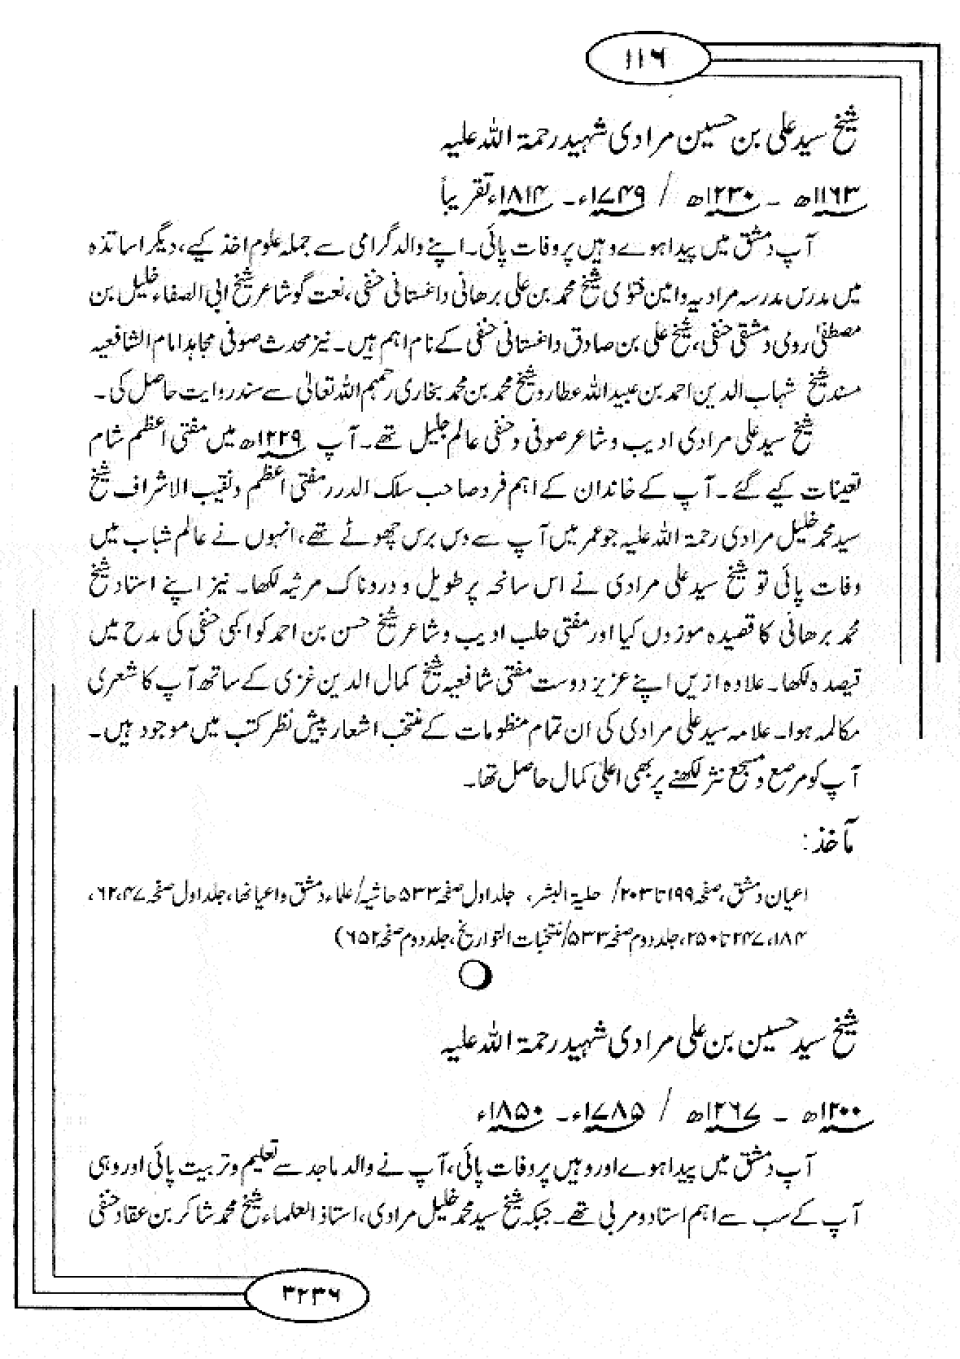 ۱۱۶
شیخ سید علی بن حسین مرادی شہید رحمۃ اللہ علیہ
۱۱۶۳ھ ۔ ۱۲۳۰ھ / ۱۷۴۹ء۔ ۱۸۱۴ء تقریباً
آپ دمشق میں پیدا ہوے وہیں پر وفات پائی۔ اپنے والد گرامی سے جملہ علوم اخذ کیے، دیگر اساتذہ
میں مدرس مدرسہ مرادیہ و امین فتوٰی شیخ محمد بن علی برھانی داغستانی حنفی، نعت گو شاعر شیخ ابی الصفاء خلیل بن
مصطفیٰ رومی دمشقی حنفی، شیخ علی بن صادق داغستانی حنفی کے نام اہم ہیں۔ نیز محدث صوفی مجاہد امام الشافعیہ
مسند شیخ شہاب الدین احمد بن عبید اللہ عطار و شیخ محمد بن محمد بخاری رحمہم اللہ تعالیٰ سے سند روایت حاصل کی۔
شیخ سید علی مرادی ادیب و شاعر صوفی و حنفی عالم جلیل تھے۔ آپ ۱۲۲۹ھ میں مفتی اعظم شام
تعینات کیے گئے۔ آپ کے خاندان کے اہم فرد صاحب سلک الدرر مفتی اعظم و نقیب الاشراف شیخ
سید محمد خلیل مرادی رحمۃ اللہ علیہ جو عمر میں آپ سے دس برس چھوٹے تھے، انہوں نے عالم شباب میں
وفات پائی تو شیخ سید علی مرادی نے اس سانحہ پر طویل و دردناک مرثیہ لکھا۔ نیز اپنے استاد شیخ
محمد برھانی کا قصیدہ موزوں کیا اور مفتی حلب ادیب و شاعر شیخ حسن بن احمد کواکبی حنفی کی مدح میں
قیصدہ لکھا۔ علاوہ ازیں اپنے عزیز دوست مفتی شافعیہ شیخ کمال الدین غزی کے ساتھ آپ کا شعری
مکالمہ ہوا۔ علامہ سید علی مرادی کی ان تمام منظومات کے منتخب اشعار پیش نظر کتب میں موجود ہیں۔
آپ کو مرصع و مسجع نثر لکھنے پر بھی اعلیٰ کمال حاصل تھا۔
مآخذ:
اعیان دمشق، صفحہ ۱۹۹ تا ۲۰۳/ حلیۃ البشر، جلد اول صفحہ ۵۳۳ حاشیہ/ علماء دمشق و اعیانھا، جلد اول صفحہ ۴۷، ۶۲،
۱۸۴، ۲۴۷ تا ۲۵۰، جلد دوم صفحہ ۵۳۳/ منتخبات التواریخ، جلد دوم صفحہ ۶۵۲)
شیخ سید حسین بن علی مرادی شہید رحمۃ اللہ علیہ
۱۲۰۰ھ ۔ ۱۲۶۷ھ / ۱۷۸۵ء۔ ۱۸۵۰ء
آپ دمشق میں پیدا ہوے اور وہیں پر وفات پائی، آپ نے والد ماجد سے تعلیم و تربیت پائی اور وہی
آپ کے سب سے اہم استاد و مربی تھے۔ جبکہ شیخ سید محمد خلیل مرادی، استاذ العلماء شیخ محمد شاکر بن عقاد حنفی
۳۲۳۶